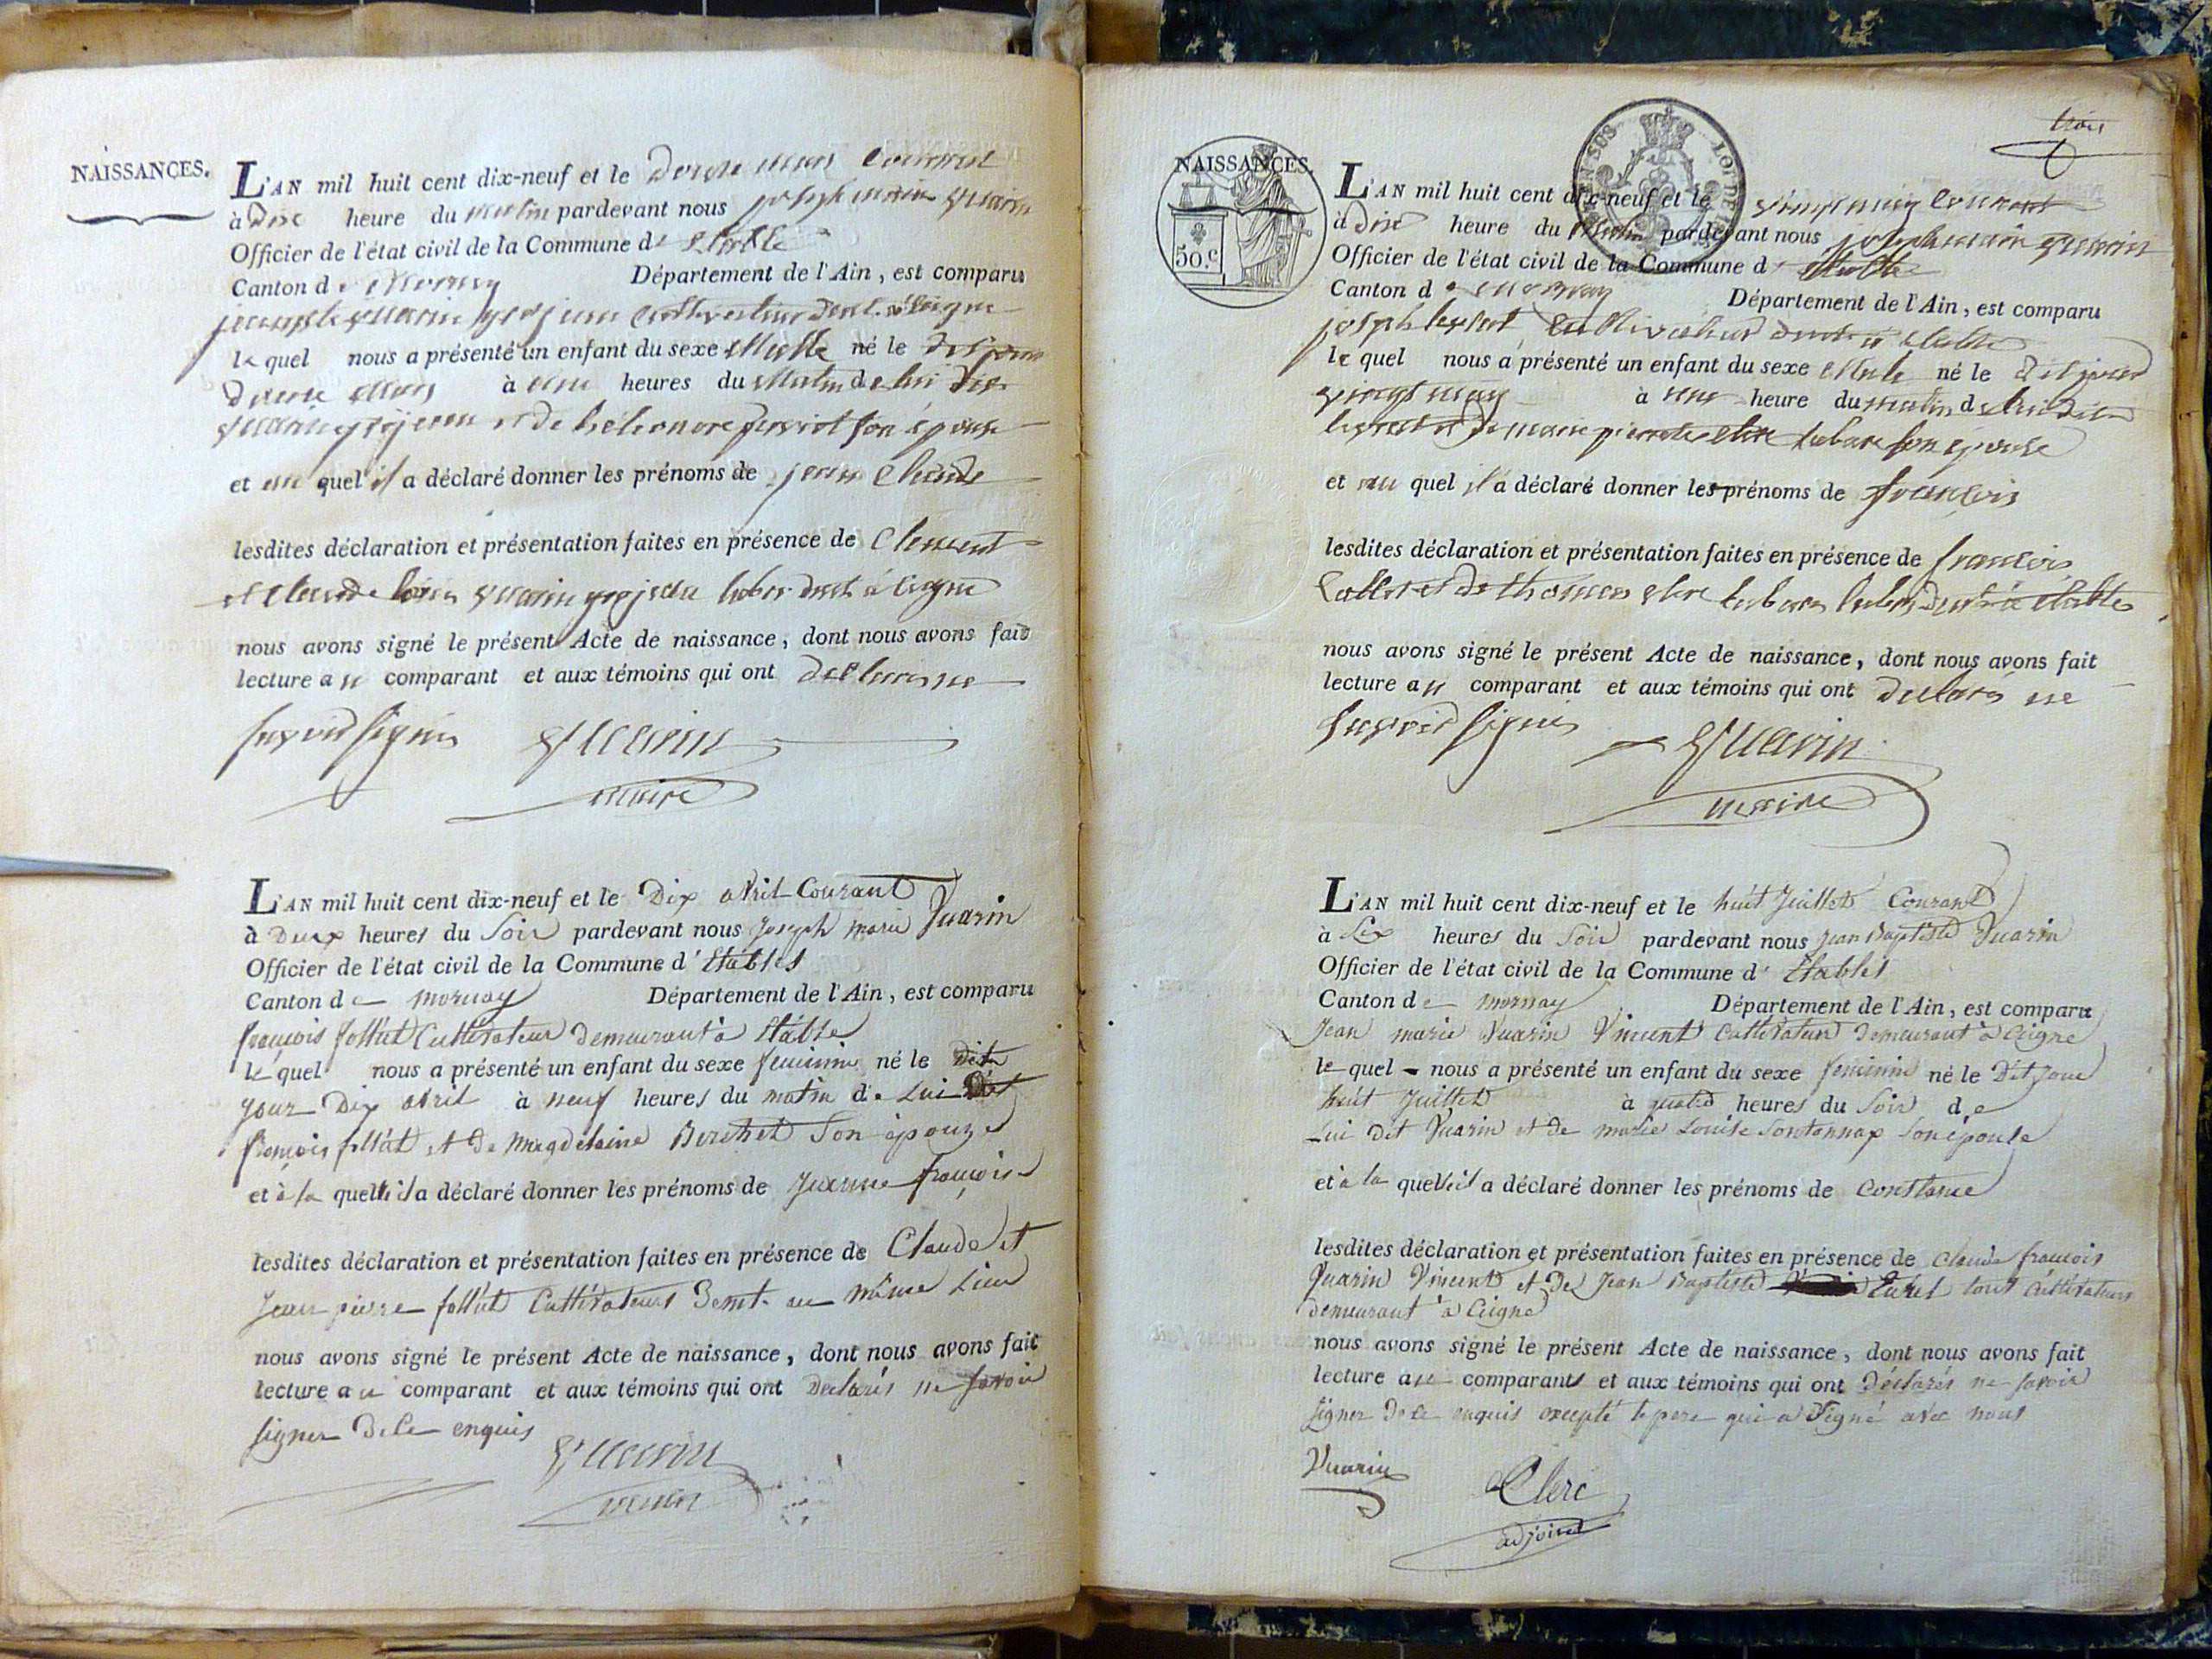 NAISSANCES.
L'AN mil huit cent dix-neuf et le Douze mars Courant
à Dix heure du matin pardevant nous joseph marie Vuarin
Officier de l'état civil de la Commune d' Etable
Canton de Mornay Département de l'Ain, est comparu
Vuarin cultivateur à Ceigne
le quel nous a présenté un enfant du sexe Malle né le dit jour
Douze Mars à une heures du Matin de lui dit
Vuarin et de héléonore son épouse
et au quel il a déclaré donner les prénoms de jean Claude
lesdites déclaration et présentation faites en présence de Clement
et Claude Vuarin à Ceigne
nous avons signé le présent Acte de naissance, dont nous avons fait
lecture au comparant et aux témoins qui ont declaré ne
savoir signer Vuarin
maire
L'AN mil huit cent dix-neuf et le Dix avril Courant
à Deux heures du Soir pardevant nous Joseph marie Vuarin
Officier de l'état civil de la Commune d' Etables
Canton de mornay Département de l'Ain, est comparu
françois follliet Cultivateur Demeurant à Etable
le quel nous a présenté un enfant du sexe feminin né le Dit
jour Dix avril à neuf heures du matin de Lui Dit
françois folliet et De Magdelaine Berthet Son épouze
et à la quelle il a déclaré donner les prénoms de Jeanne françoise
lesdites déclaration et présentation faites en présence de Claude et
Jean pierre folliet Cultivateurs Demt. au même Lieu
nous avons signé le présent Acte de naissance, dont nous avons fait
lecture au comparant et aux témoins qui ont Declarés ne savoir
signer De Ce enquis
Vuarin
maire
trois
NAISSANCES.
50.c
L'AN mil huit cent dix-neuf et le vingt may Courant
à Dix heure du Matin pardevant nous joseph marie Vuarin
Officier de l'état civil de la Commune d' Etable
Canton de mornay Département de l'Ain, est comparu
joseph Cultivateur à Etable
le quel nous a présenté un enfant du sexe Male né le dit jour
vingt may à une heure du matin de lui dit
et de marie pierrette son épouse
et au quel il a déclaré donner les prénoms de françois
lesdites déclaration et présentation faites en présence de françois
et de thomas à Etable
nous avons signé le présent Acte de naissance, dont nous avons fait
lecture au comparant et aux témoins qui ont declaré ne
savoir signer Vuarin
maire
L'AN mil huit cent dix-neuf et le huit Juillet Courant
à Six heures du Soir pardevant nous Jean Baptiste Vuarin
Officier de l'état civil de la Commune d' Etables
Canton de mornay Département de l'Ain, est comparu
Jean marie Vuarin Vincent Cultivateur Demeurant à Ceigne
le quel nous a présenté un enfant du sexe feminin né le Dit Jour
huit Juillet à quatre heures du Soir de
Lui Dit Vuarin et de marie Louise Sontonnax Son épouse
et à la quelle il a déclaré donner les prénoms de Constance
lesdites déclaration et présentation faites en présence de Claude françois
Vuarin Vincent et De Jean Baptiste tous Cultivateurs
demeurant à Ceigne
nous avons signé le présent Acte de naissance, dont nous avons fait
lecture au comparant et aux témoins qui ont Déclarés ne savoir
signer De Ce enquis excepté le pere qui a Signé avec nous
Vuarin Clerc
adjoint